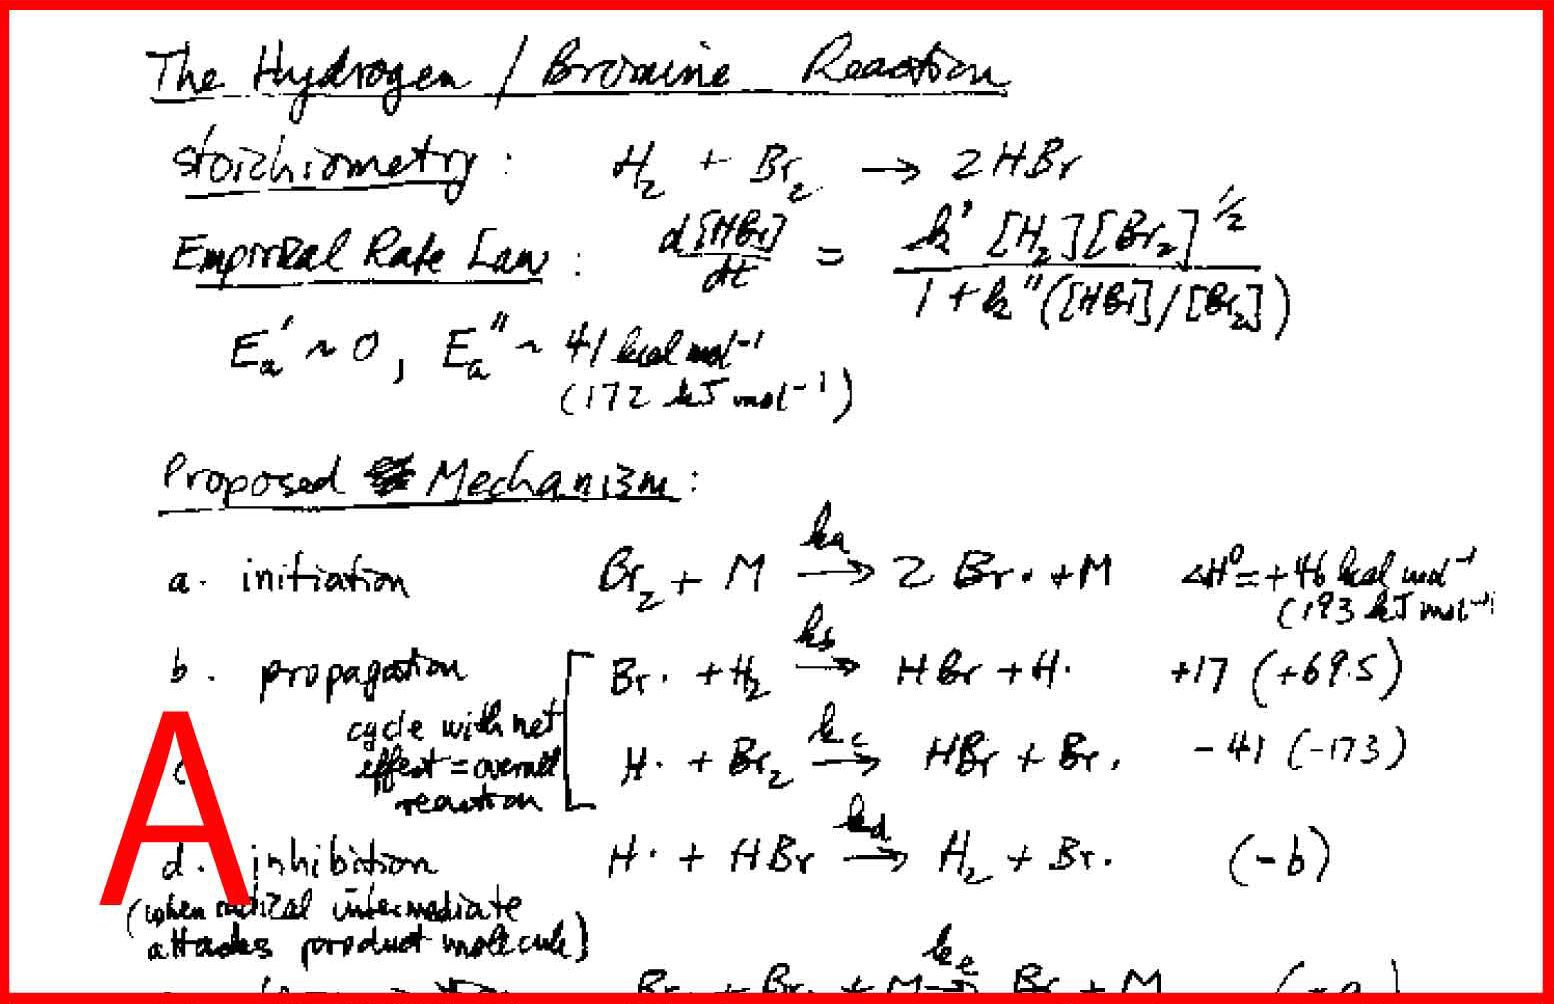 The Hydrogen / Bromine Reaction
stoichiometry: H₂ + Br₂ → 2HBr
Empirical Rate Law: d[HBr]/dt = k' [H₂][Br₂]^1/2 / 1 + k"([HBr]/[Br₂])
Eₐ' ~ 0, Eₐ" ~ 41 kcal mol⁻¹
(172 kJ mol⁻¹)
Proposed Mechanism:
a. initiation Br₂ + M →(ka) 2 Br· + M ΔH⁰ = +46 kcal mol⁻¹
(193 kJ mol⁻¹
b. propagation Br· + H₂ →(kb) HBr + H· +17 (+69.5)
cycle with net
c effect = overall H· + Br₂ →(kc) HBr + Br· -41 (-173)
reaction
A
d. inhibition H· + HBr →(kd) H₂ + Br· (-b)
(when radical intermediate
attacks product molecule)
Br· + Br· + M →(ke) Br₂ + M (-a)